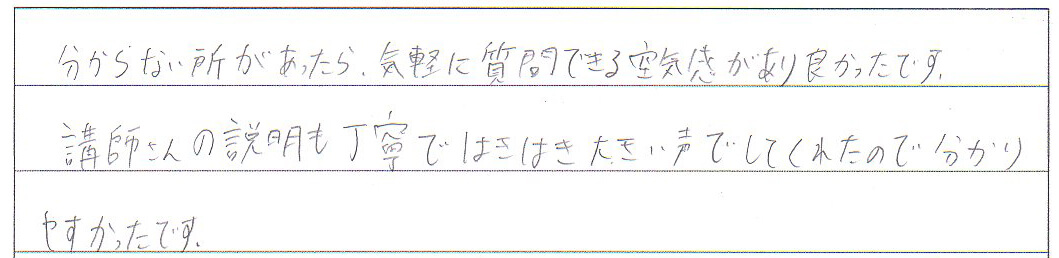 分からない所があったら、気軽に質問できる空気感があり良かったです。
講師さんの説明も丁寧ではきはき大きい声でしてくれたので分かり
やすかったです。